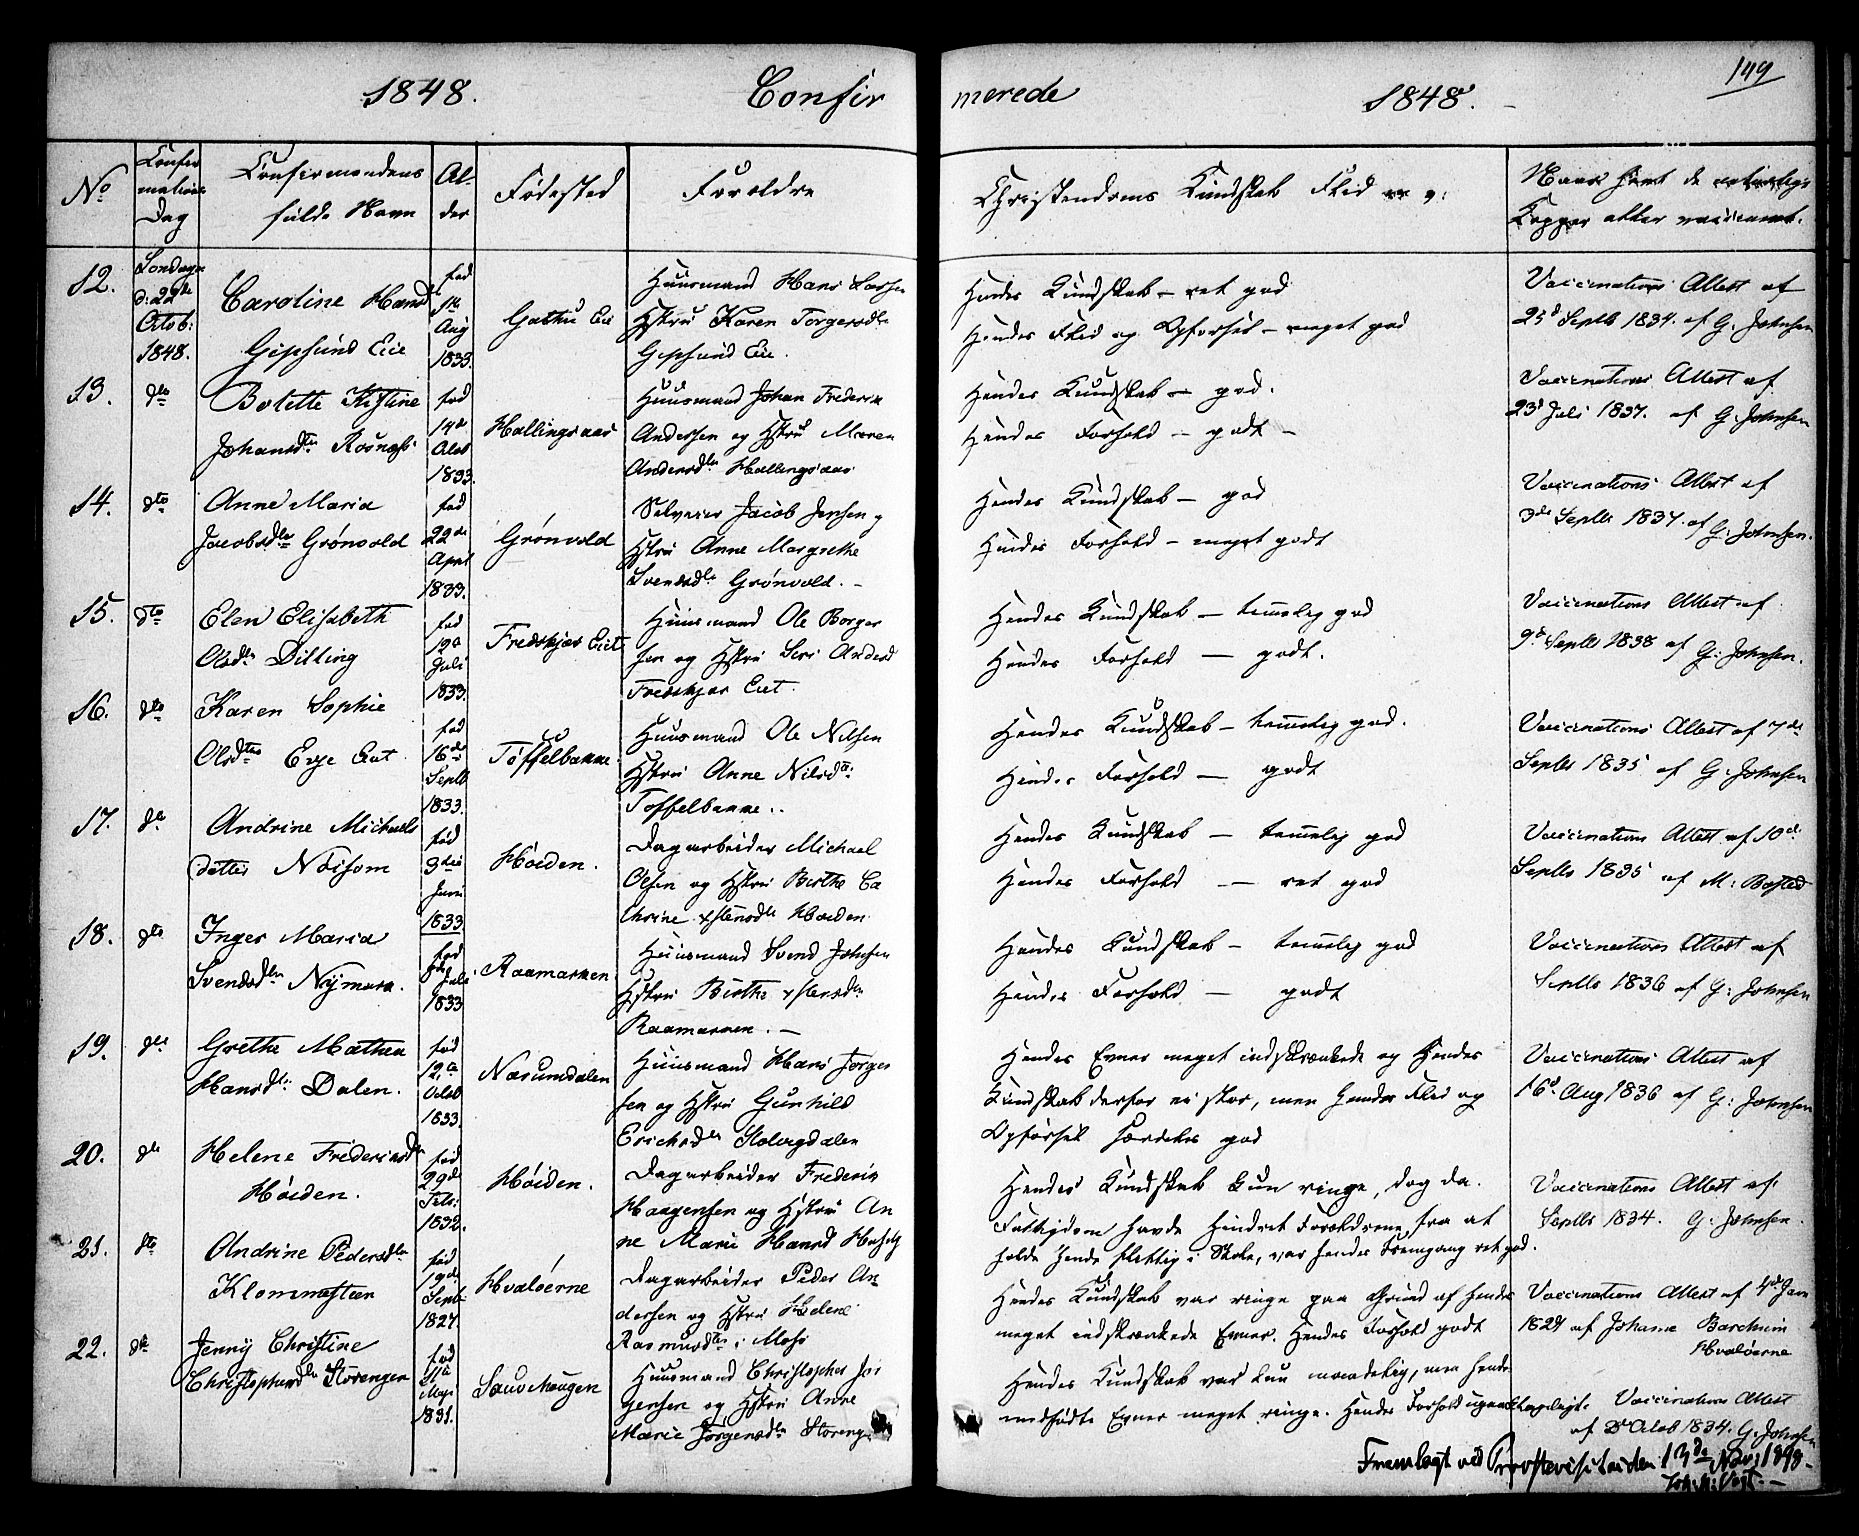 1848. Confir
merede 1848. 149
No
Confir
mations
Dag
Confirmandens
fulde Navn
Al-
der
Fødested
Forældre
Christendoms Kundskab Flid
Naar havt de naturlige
Kopper eller vaccineret.
12.
Søndagen
d: 22de
Octob:
1848.
Caroline Hansdtr
Gipsund Eie
fød
Aug
1833.
Huusmand Hans Larsen
Hstru Karen Torgersdtr
Gipsund Eie.
Hendes Kundskab – ret god
Hendes Flid og Opførsel – meget god
Vaccinations Attest af
23d Septb 1834. af G: Johnsen
13. dto
Bolette Kistine
Johansdtr Rosnæs
fød
14de
Octob
1833.
Hallingsaas
Huusmand Johan Frederik
Andersen og Hstru Maren
Andersdtr Hallingsaas
Hendes Kundskab – god.
Hendes Forhold – godt –
Vaccinations Attest af
23d Juli 1837. af G: Johnsen
14. dto
Anne Maria
Jacobsdtr Grønvold
fød
22de
April
1833.
Grønvold
Selveier Jacob Jensen og
Hstru Anne Margrethe
Svendsdtr Grønvold. –
Hendes Kundskab – god
Hendes Forhold – meget godt
Vaccinations Attest af
3de Septb 1837 af G: Johnsen.
15. dto
Elen Elisabeth
Olsdtr Dilling
fød
19de
Juli
1833.
Fredskjær Eiet
Huusmand Ole Borger
sen og Hstru Siri Andersd
Fredskjær Eiet.
Hendes Kundskab – temelig god
Hendes Forhold – godt.
Vaccinations Attest af
9d Septb 1838 af G: Johnsen.
16. dto
Karen Sophie
Olsdtr Evje Eiet
fød
16de
Septb
1833.
Tøffelbakke
Huusmand Ole Nilsen
Hstru Anne Nilsdtr
Toffelbakke.
Hendes Kundskab – temelig god.
Hendes Forhold – godt
Vaccinations Attest af 7de
Septb 1835 af G: Johnsen
17. dto
Andrine Michaels
datter Nøisom
fød
3die
Juni
1833
Høiden.
Dagarbeider Michael
Olsen og Hstru Birthe Ca
thrine Hansdtr Høiden
Hendes Kundskab – temelig god
Hendes Forhold – ret god
Vaccinations Attest af 10de
Septb 1835 af M: Basted
18. dto
Inger Maria
Svendsdtr Nymark.
fød
Juli
1833
Raamarken
Huusmand Svend Johnsen
Hstru Birthe Hansdtr
Raamarken. –
Hendes Kundskab – temelig god
Hendes Forhold – godt
Vaccinations Attest af
Septb 1836 af G: Johnsen
19. dto
Grethe Mathea
Hansdtr Dalen.
fød
12te
Octob
1833.
Næsumdalen
Huusmand Hans Jørgen
sen og Hstru Gunhild
Erichsdtr
Hendes Evner meget indskrænkede og Hendes
Kundskab derfor ei stor, men Hendes Flid og
Opførsel særdeles god
Vaccinations Attest af
16d Aug 1836 af G: Johnsen
20. dto
Helene Frederiksdtr
Høiden.
fød
29de
Febr:
1832.
Høiden.
Dagarbeider Frederik
Haagensen og Hstru An
ne Marie Hansd
Hendes Kundskab kun ringe, dog da
Fattigdom havde hindret Forældrene fra at
holde hende flittig i Skole, var hendes Fremgang ret god.
Vaccinations Attest af
Septb 1834. G: Johnsen.
21. dto
Andrine Pedersdtr
Klommesteen
fød
19de
Septb:
1827.
Hvaløerne
Dagarbeider Peder An
dersen og Hstru Helene
Rasmusdtr i Moss
Hendes Kundskab var ringe paa Grund af Hendes
meget indskrænkede Evner. Hendes Forhold godt
Vaccinations Attest af 4de Jan
1829 af Johanne Barchium
Hvaløerne
22. dto
Jenny Christine
Christophersdtr Storengen
fød
Maji
1831.
Sauehaugen
Huusmand Christopher Jør
gensen og Hstru Anne
Marie Jørgensdtr Storeng
Hendes Kundskab var kun maadelig, men Hendes
medfødte Evner meget ringe. Hendes Forhold upaaklageligt.
Vaccinations Attest
af Octob 1834. G: Johnsen
Fremlagt ved Provstevisitatsen 13de Nov: 1848.
Vogt. –